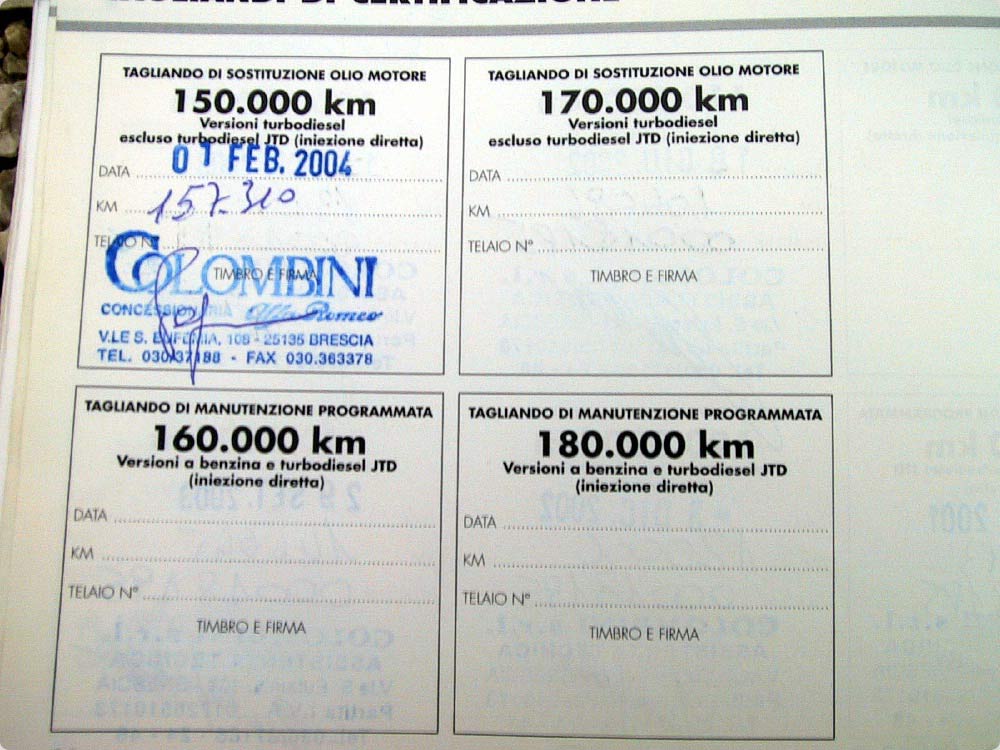 TAGLIANDI DI CERTIFICAZIONE
TAGLIANDO DI SOSTITUZIONE OLIO MOTORE
150.000 km
Versioni turbodiesel
escluso turbodiesel JTD (iniezione diretta)
DATA 01 FEB. 2004
KM 157.310
TELAIO N°
COLOMBINI
TIMBRO E FIRMA
CONCESSIONARIA Alfa Romeo
V.LE S. EUFEMIA, 108 - 25135 BRESCIA
TEL. 030.37188 - FAX 030.363378
TAGLIANDO DI SOSTITUZIONE OLIO MOTORE
170.000 km
Versioni turbodiesel
escluso turbodiesel JTD (iniezione diretta)
DATA
KM
TELAIO N°
TIMBRO E FIRMA
TAGLIANDO DI MANUTENZIONE PROGRAMMATA
160.000 km
Versioni a benzina e turbodiesel JTD
(iniezione diretta)
DATA
KM
TELAIO N°
TIMBRO E FIRMA
TAGLIANDO DI MANUTENZIONE PROGRAMMATA
180.000 km
Versioni a benzina e turbodiesel JTD
(iniezione diretta)
DATA
KM
TELAIO N°
TIMBRO E FIRMA